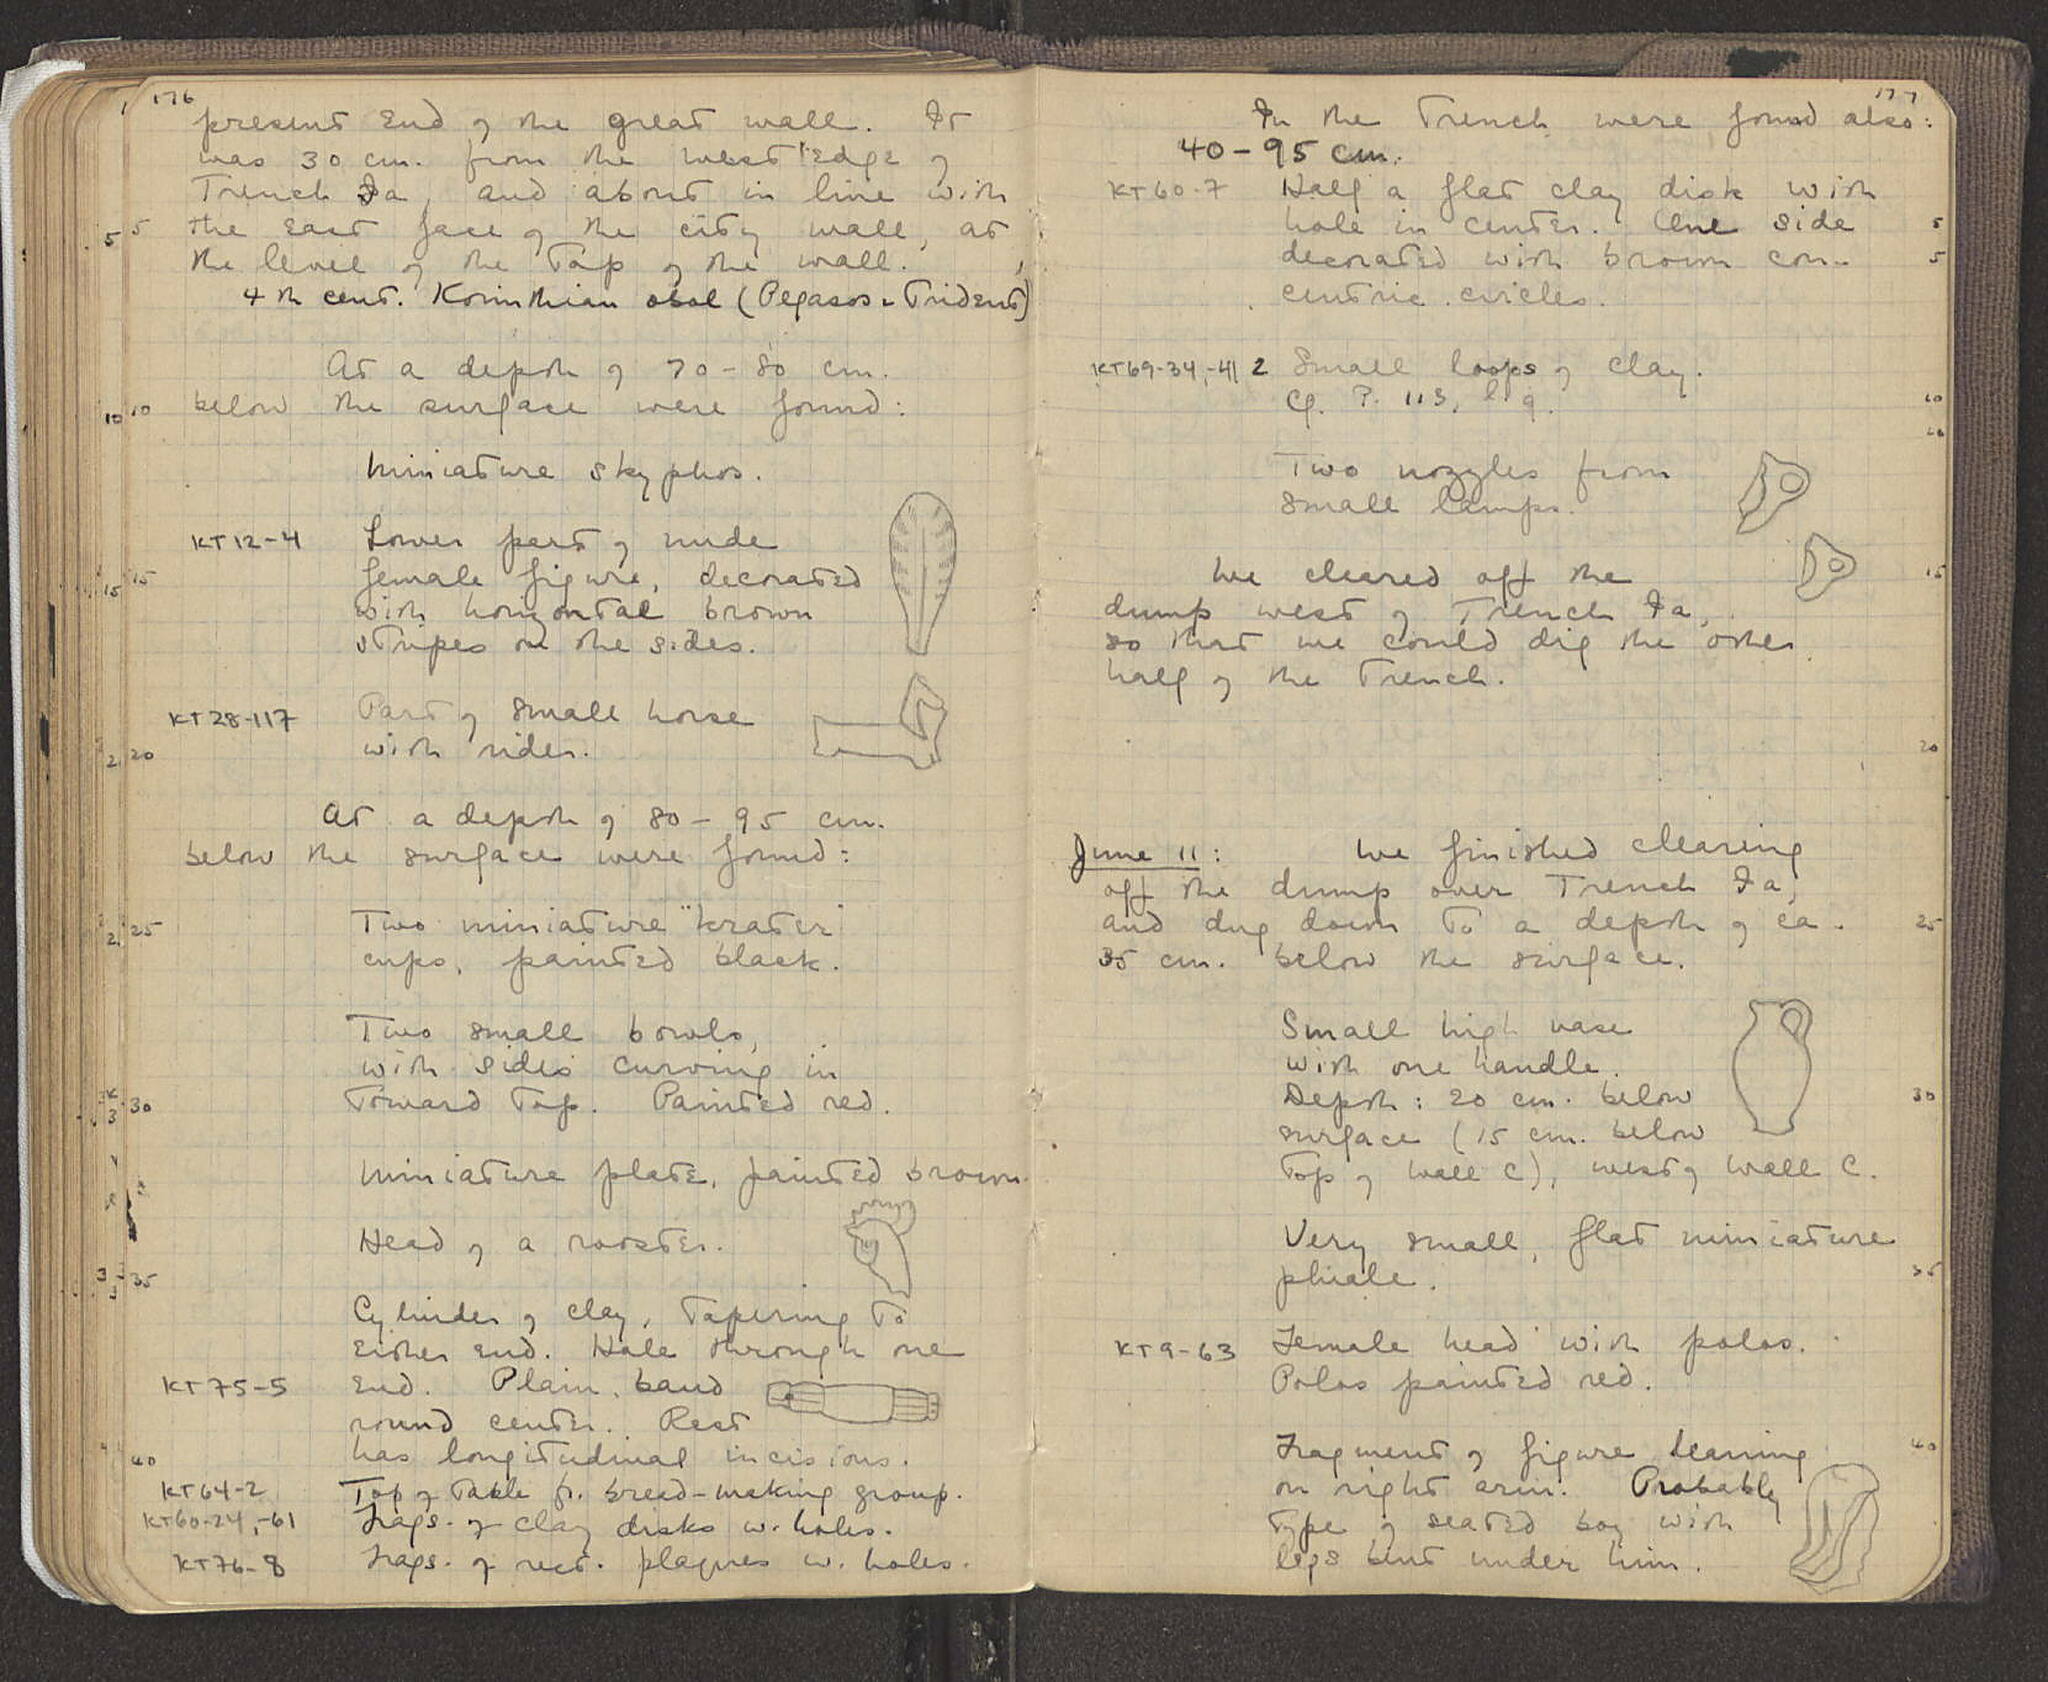 176
present end of the great wall. It
was 30 cm. from the west edge of
Trench Ia, and about in line with
the east face of the city wall, at
the level of the top of the wall.
4th cent. Korinthian obol (Pegasos - Trident)
At a depth of 70-80 cm.
below the surface were found:
Miniature skyphos.
KT12-4 Lower part of nude
female figure, decorated
with horizontal brown
stripes on the sides.
KT28-117 Part of small horse
with rider.
At a depth of 80-95 cm.
below the surface were found:
Two miniature "krater"
cups, painted black.
Two small bowls,
with sides curving in
toward top. Painted red.
Miniature plate, painted brown.
Head of a rooster.
Cylinder of clay, tapering to
either end. Hole through one
KT75-5 end. Plain band
round center. Rest
has longitudinal incisions.
KT64-2 Top of table fr. bread-making group.
KT60-24,-61 Frags. of clay disks w. holes.
KT76-8 Frags. of rect. plaques w. holes.
5
10
15
20
25
30
35
40
177
In the trench were found also:
40-95 cm.
KT60-7 Half a flat clay disk with
hole in center. One side
decorated with brown con-
centric circles.
KT69-34,-41 2 small loops of clay.
Cf. P. 113, l. 9.
Two nozzles from
small lamps.
We cleared off the
dump west of Trench Ia,
so that we could dig the other
half of the trench.
June 11: We finished clearing
off the dump over Trench Ia,
and dug down to a depth of ca.
35 cm. below the surface.
Small high vase
with one handle.
Depth: 20 cm. below
surface (15 cm. below
top of wall C), west of wall C.
Very small, flat miniature
phiale.
KT9-63 Female head with polos.
Polos painted red.
Fragment of figure leaning
on right arm. Probably
type of seated boy with
legs bent under him.
5
10
15
20
25
30
35
40